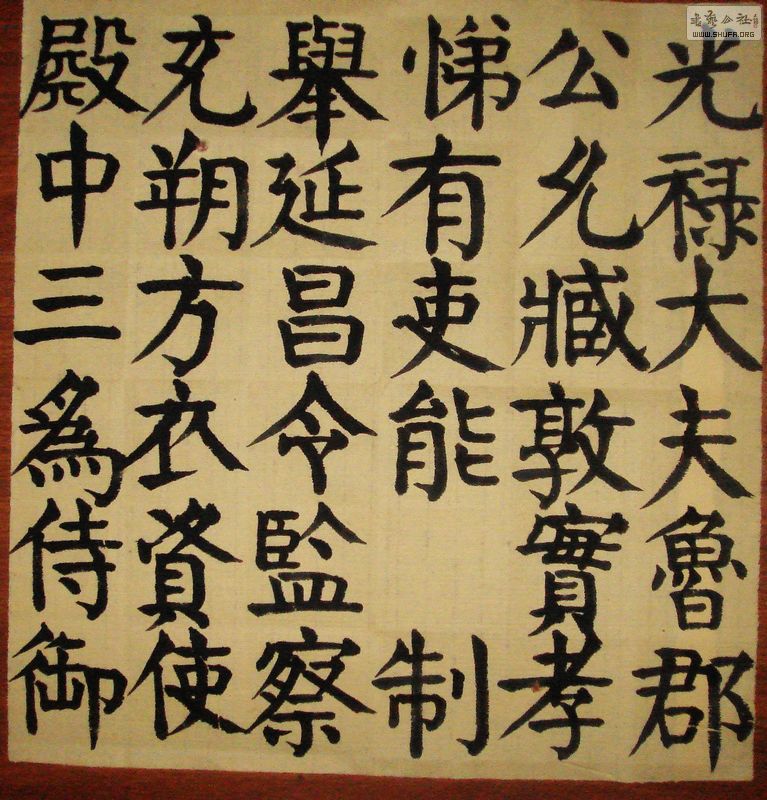 光禄大夫魯郡
公允臧敦實孝
悌有吏能 制
舉延昌令監察
充朔方衣資使
殿中三爲侍御
書藝公社
WWW.SHUFA.ORG